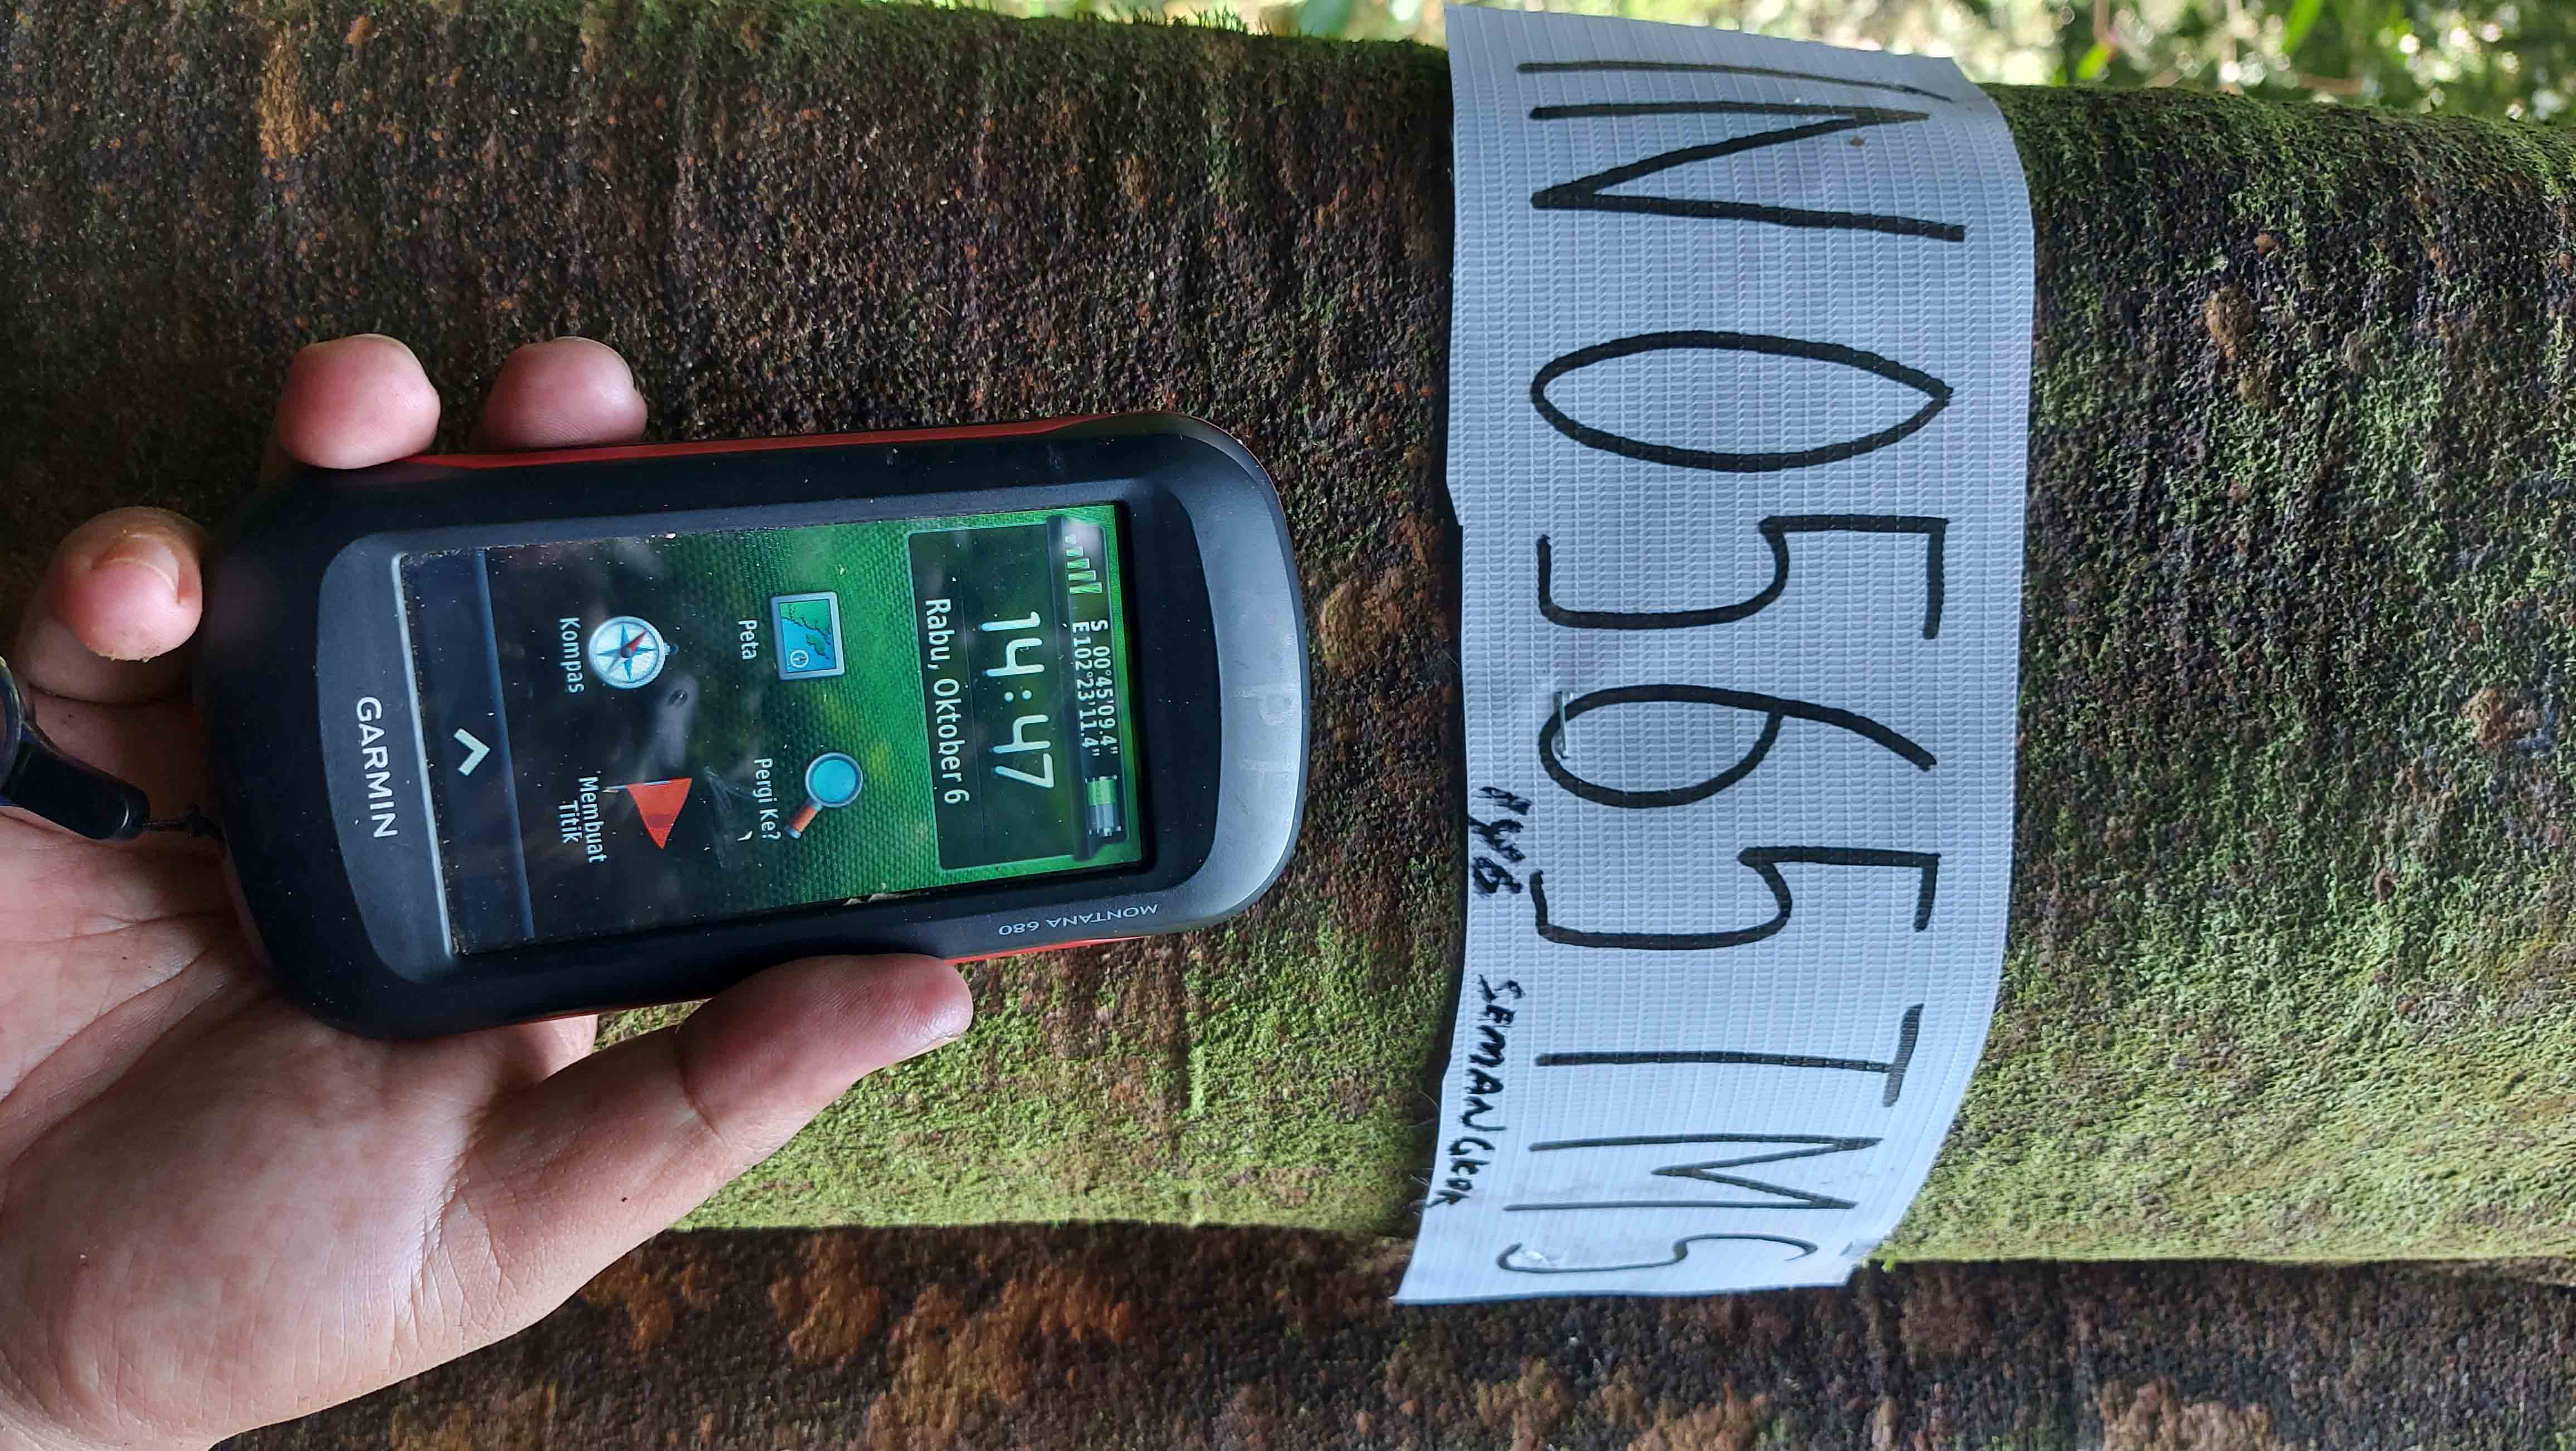 IN0565TMS
SEMANGKOK
S 00°45'09.4"
E102°23'11.4"
14:47
Rabu, Oktober 6
Peta
Pergi Ke?
Kompas
Membuat
Titik
GARMIN
MONTANA 680